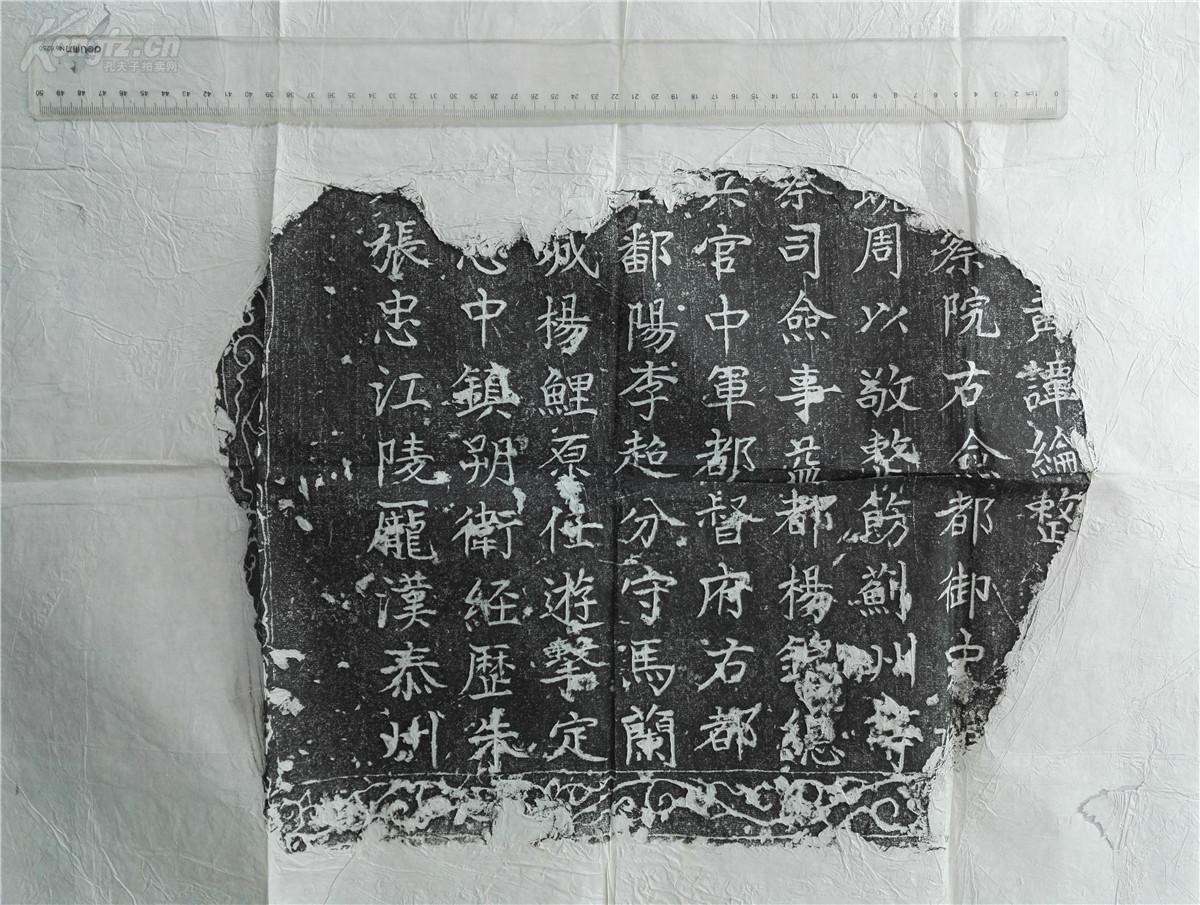 諱綸整
察院右僉都御史
周以敬整飭薊州等
司僉事益都楊錦總
兵官中軍都督府右都
鄱陽李超分守馬蘭
城楊鯉原任遊擊定
忠中鎮朔衛経歷朱
張忠江陵龐漢泰州
Kongfz.cn
孔夫子拍卖网
deli
No.6250
50 49 48 47 46 45 44 43 42 41 40 39 38 37 36 35 34 33 32 31 30 29 28 27 26 25 24 23 22 21 20 19 18 17 16 15 14 13 12 11 10 9 8 7 6 5 4 3 2 1cm 0